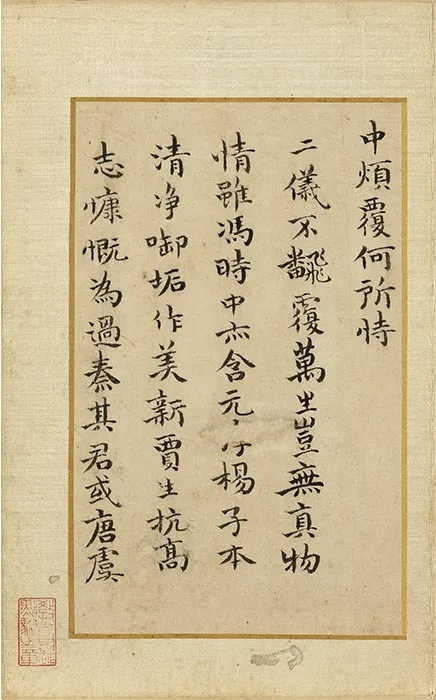 中煩覆何所恃
二儀不飜覆萬生豈無真物
情雖馮時中亦含元楊子本
清净啣垢作美新賈生抗高
志慷慨為過秦其君或唐虞